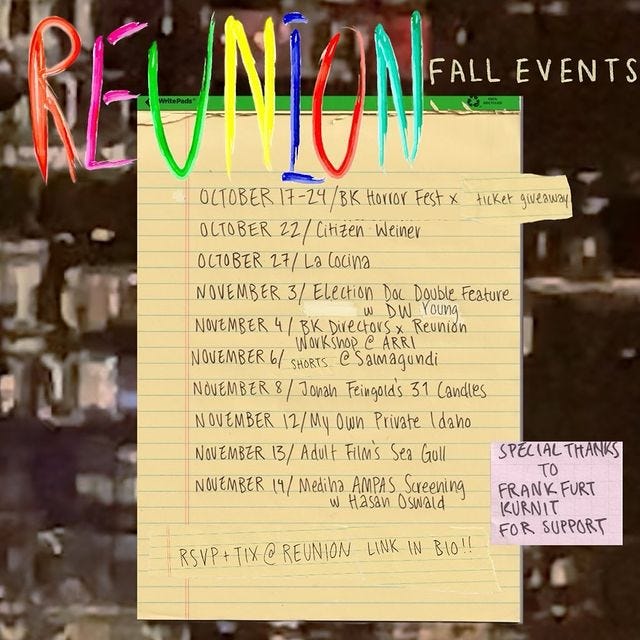 REUNION
FALL EVENTS
WritePads
OCTOBER 17-24/BK Horror Fest x ticket giveaway
OCTOBER 22/ Citizen Weiner
OCTOBER 27/ La Cocina
NOVEMBER 3/ Election Doc Double Feature
w DW Young
NOVEMBER 4/ BK Directors x Reunion
Workshop @ ARRI
NOVEMBER 6/ SHORTS @ Salmagundi
NOVEMBER 8/ Jonah Feingold's 31 Candles
NOVEMBER 12/ My Own Private Idaho
NOVEMBER 13/ Adult Film's Sea Gull
NOVEMBER 14/ Mediha AMPAS Screening
w Hasan Oswald
RSVP+TIX @ REUNION LINK IN BIO!!
SPECIAL THANKS
TO
FRANKFURT
KURNIT
FOR SUPPORT